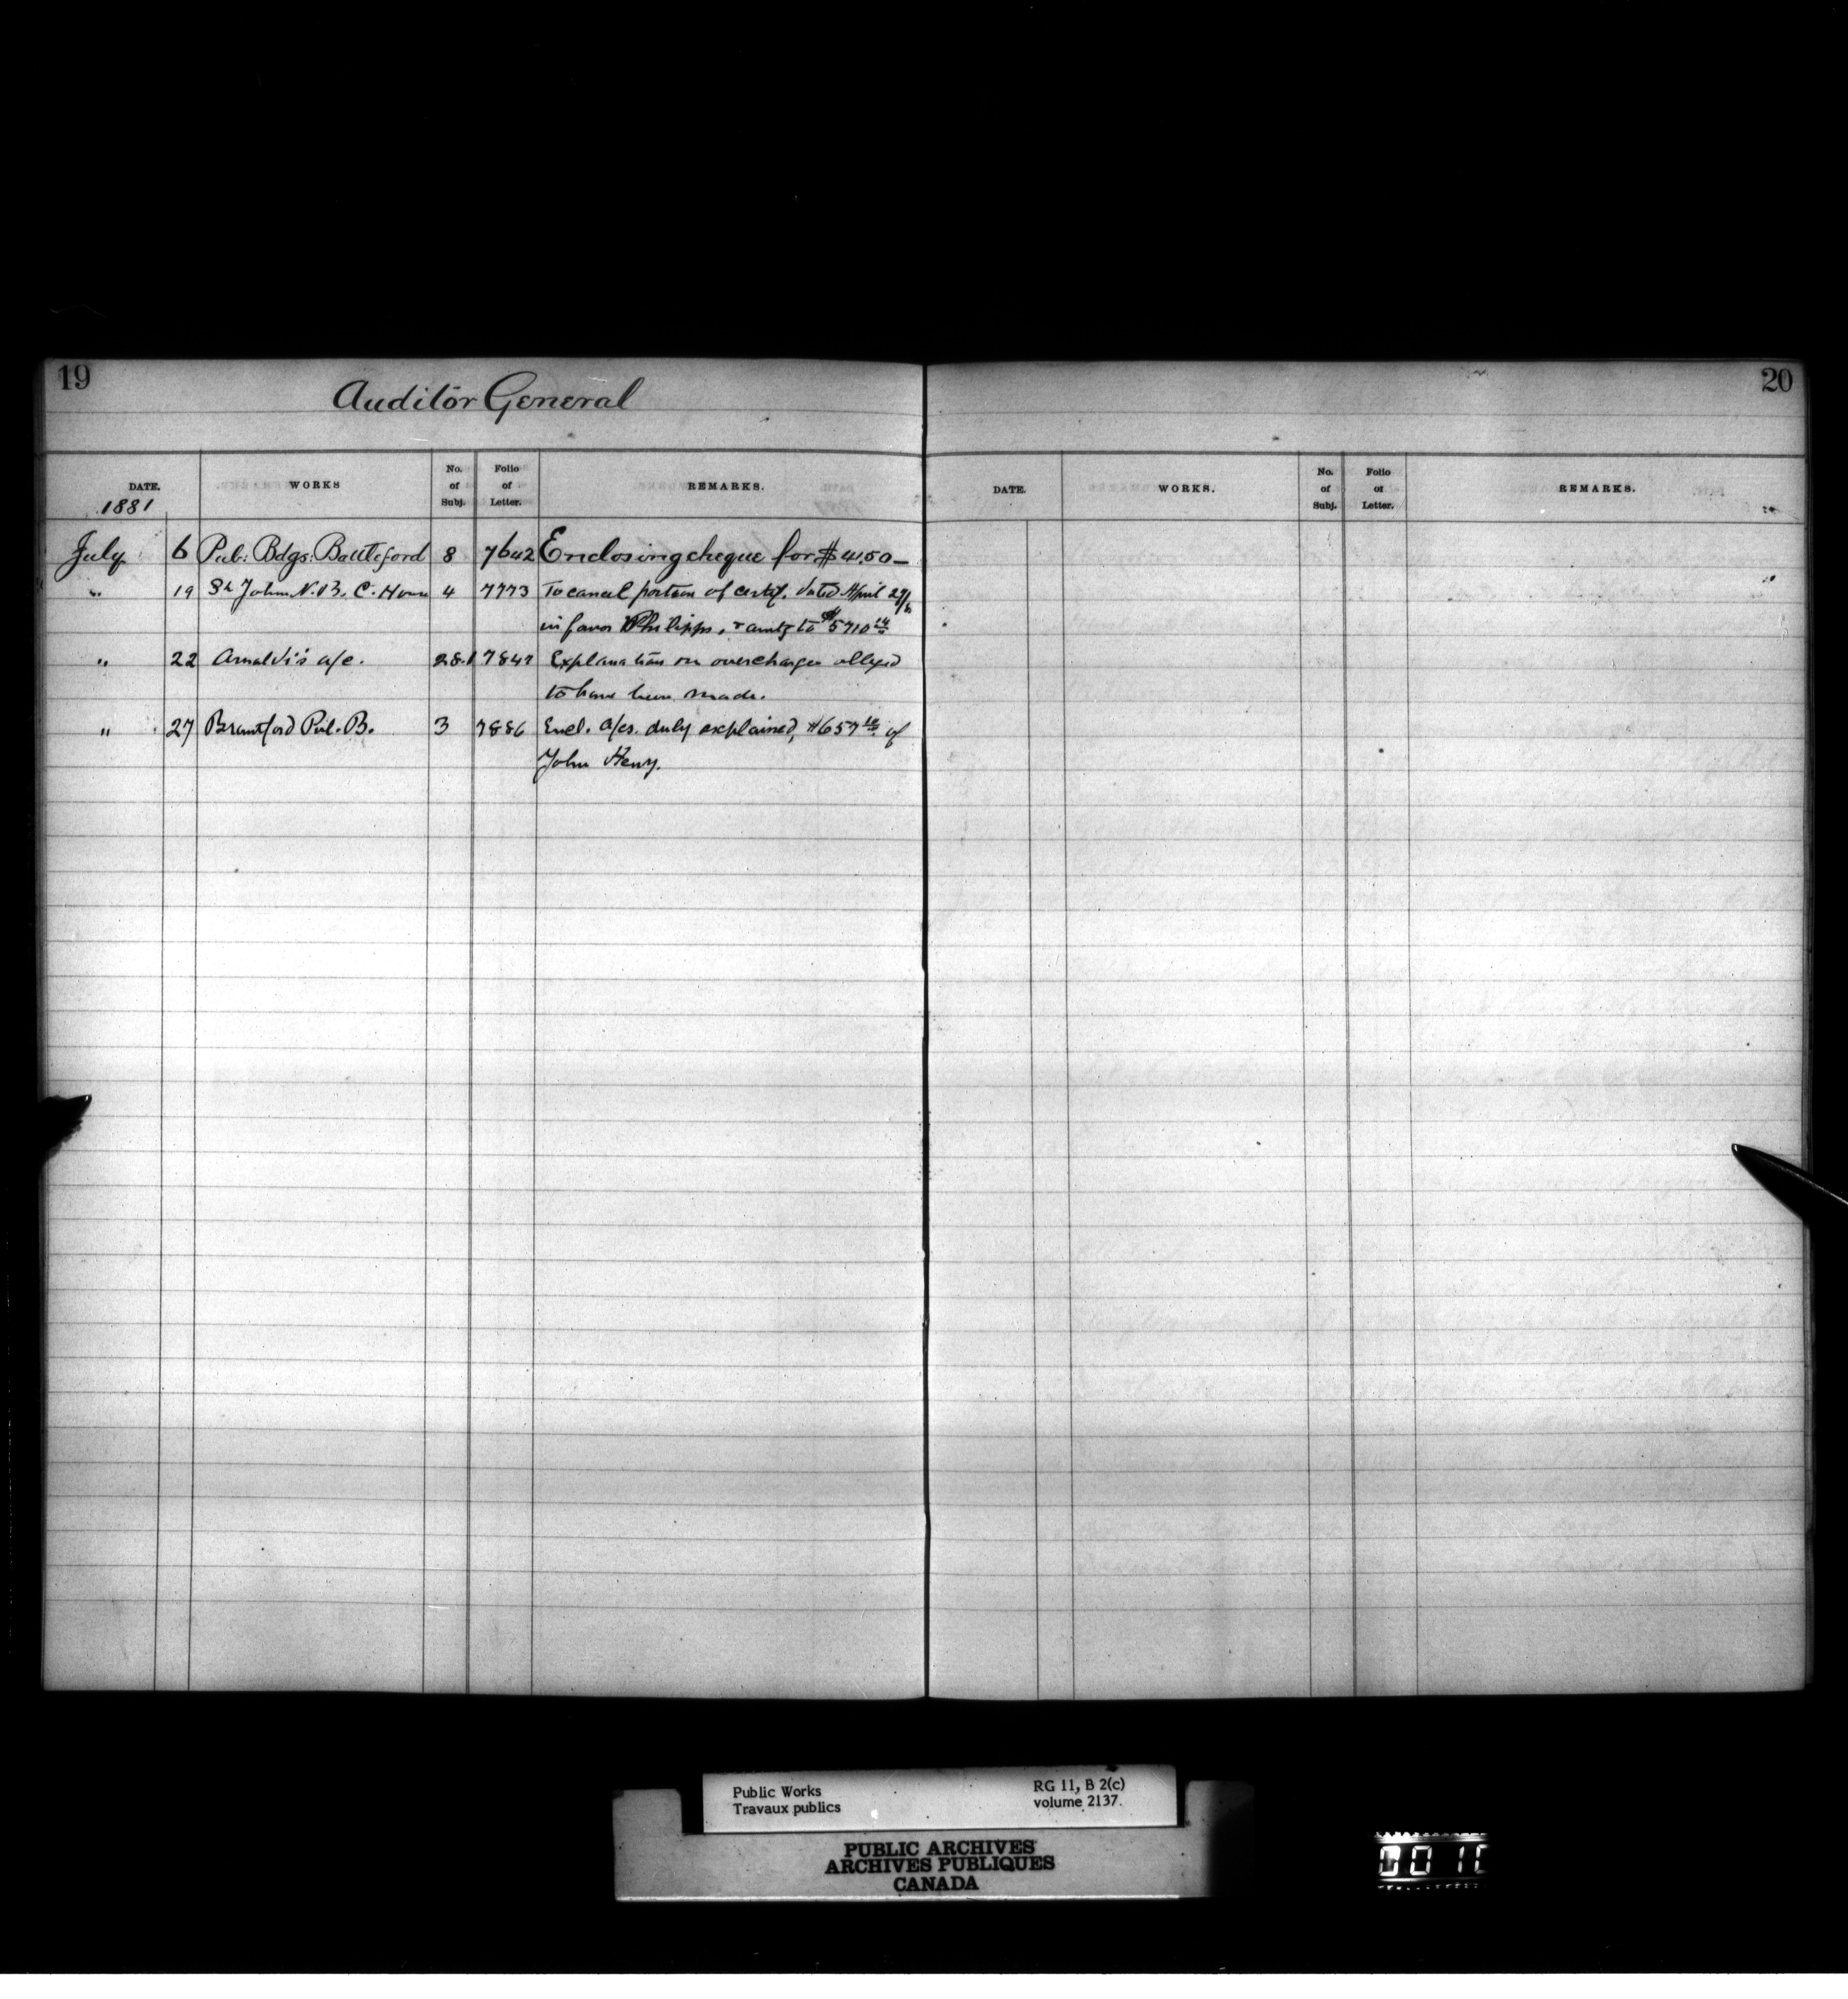 19
Auditor General
20
DATE. WORKS No. of Subj. Folio of Letter. REMARKS.
DATE. WORKS. No. of Subj. Folio of Letter. REMARKS.
1881
July 6 Pub: Bdgs: Battleford 8 7642 Enclosing cheque for $4.50
" 19 St John N.B. C. House 4 7773 To cancel portion of certif. dated April 29/
in favor Philipps, & amtg to $5710
" 22 Arnoldi's a/c. 28.1 7847 Explanation on overcharges alleged
to have been made.
" 27 Brantford Pub. B. 3 7886 Encl. a/cs. duly explained, $657 10 of
John Henry.
Public Works RG 11, B 2(c)
Travaux publics volume 2137.
PUBLIC ARCHIVES
ARCHIVES PUBLIQUES
CANADA